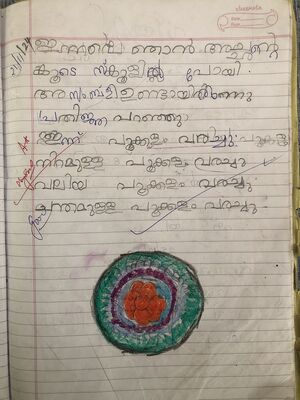 classmate
Date
Page
21/11/24
ഇന്നലെ ഞാൻ അച്ഛന്റെ
കൂടെ സ്കൂളിൽ പോയി.
അസംബ്ലി ഉണ്ടായിരുന്നു
പ്രതിജ്ഞ പറഞ്ഞു
ഇന്ന് പൂക്കളം വരച്ചു. പൂക്കളം
നിറമുള്ള പൂക്കളം വരച്ചു
വലിയ പൂക്കളം വരച്ചു
ചന്തമുള്ള പൂക്കളം വരച്ചു.